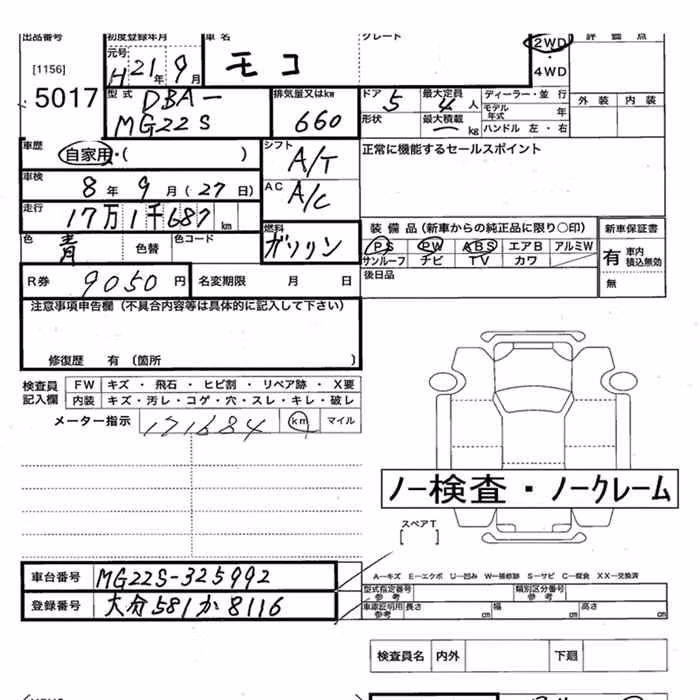 出品番号 初度登録年月 車名 グレード 2WD 評価点
[1156] 元号 H21年9月 モコ ・ 4WD
5017 型式 DBA-MG22S 排気量又はkw 660 ドア 5 最大定員 4人 ディーラー・並行 外装 内装
形状 最大積載 ー kg モデル年式 年
ハンドル 左・右
車歴 自家用・( ) シフト A/T 正常に機能するセールスポイント
車検 8年9月(27日) AC A/C
走行 17万1千687km 燃料 ガソリン 装備品(新車からの純正品に限り○印) 新車保証書
色 青 色替 色コード PS PW ABS エアB アルミW 有 車内積込無効
サンルーフ ナビ TV カワ
R券 9050円 名変期限 月 日 後日品 無
注意事項申告欄(不具合内容等は具体的に記入して下さい)
修復歴 有 (箇所 )
検査員記入欄 FW キズ・飛石・ヒビ割・リペア跡・X要
内装 キズ・汚レ・コゲ・穴・スレ・キレ・破レ
メーター指示 171684 km マイル
ノー検査・ノークレーム
スペアT
[ ]
車台番号 MG22S-325992
A-キズ E-エクボ U-凹み W-補修跡 S-サビ C-腐食 XX-交換済
登録番号 大分581か8116
型式指定番号 参考 類別区分番号 参考
車庫証明用 参考 長さ cm 幅 cm 高さ cm
検査員名 内外 下廻